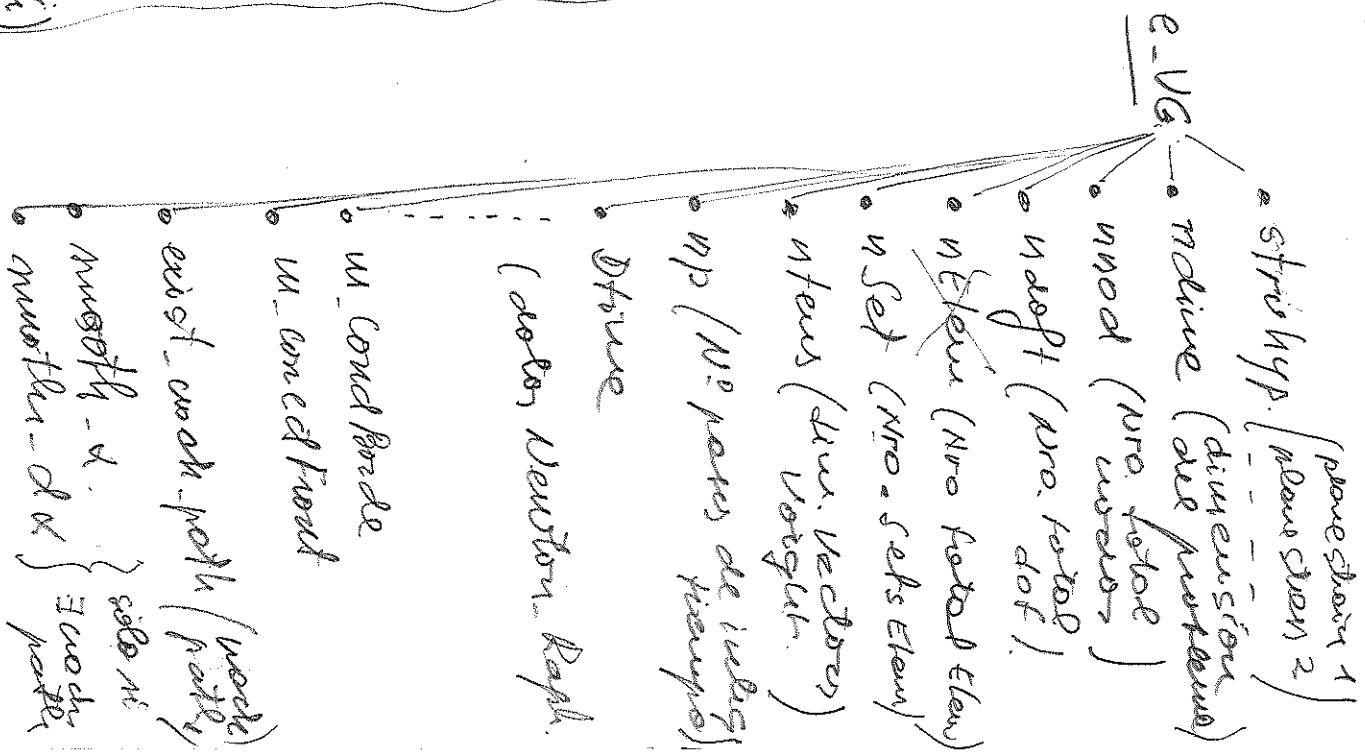 e-VG
• strihyp. (planestrain 1
planestress 2)
• ndime (dimensión
del problema)
• nnod (Nro. total
nodos)
• ndoft (Nro. total
dof)
• nElem (Nro total Elem)
• nSet (Nro. Sets Elem)
• ntens (dim. Vectores
Voight.)
• np (Nº pasos de integ
tiempo)
• Dtime
(datos Newton-Raph.
• m_CondBorde
• m_conecFront
exist_crack_path (crack
path)
} sólo si
∃ crack
path